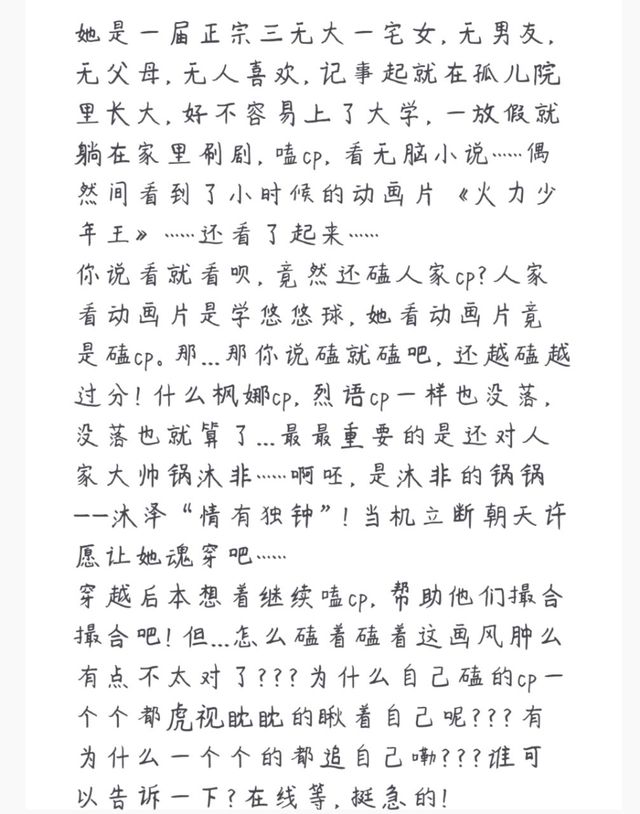 她是一届正宗三无大一宅女,无男友,
无父母,无人喜欢,记事起就在孤儿院
里长大,好不容易上了大学,一放假就
躺在家里刷剧,嗑cp,看无脑小说……偶
然间看到了小时候的动画片《火力少
年王》……还看了起来……
你说看就看呗,竟然还磕人家cp?人家
看动画片是学悠悠球,她看动画片竟
是磕cp。那...那你说磕就磕吧,还越磕越
过分!什么枫娜cp,烈语cp一样也没落,
没落也就算了...最最重要的是还对人
家大帅锅沐非……啊呸,是沐非的锅锅
--沐泽“情有独钟”!当机立断朝天许
愿让她魂穿吧……
穿越后本想着继续嗑cp,帮助他们撮合
撮合吧!但...怎么磕着磕着这画风肿么
有点不太对了???为什么自己磕的cp一
个个都虎视眈眈的瞅着自己呢???有
为什么一个个的都追自己嘞???谁可
以告诉一下?在线等,挺急的!